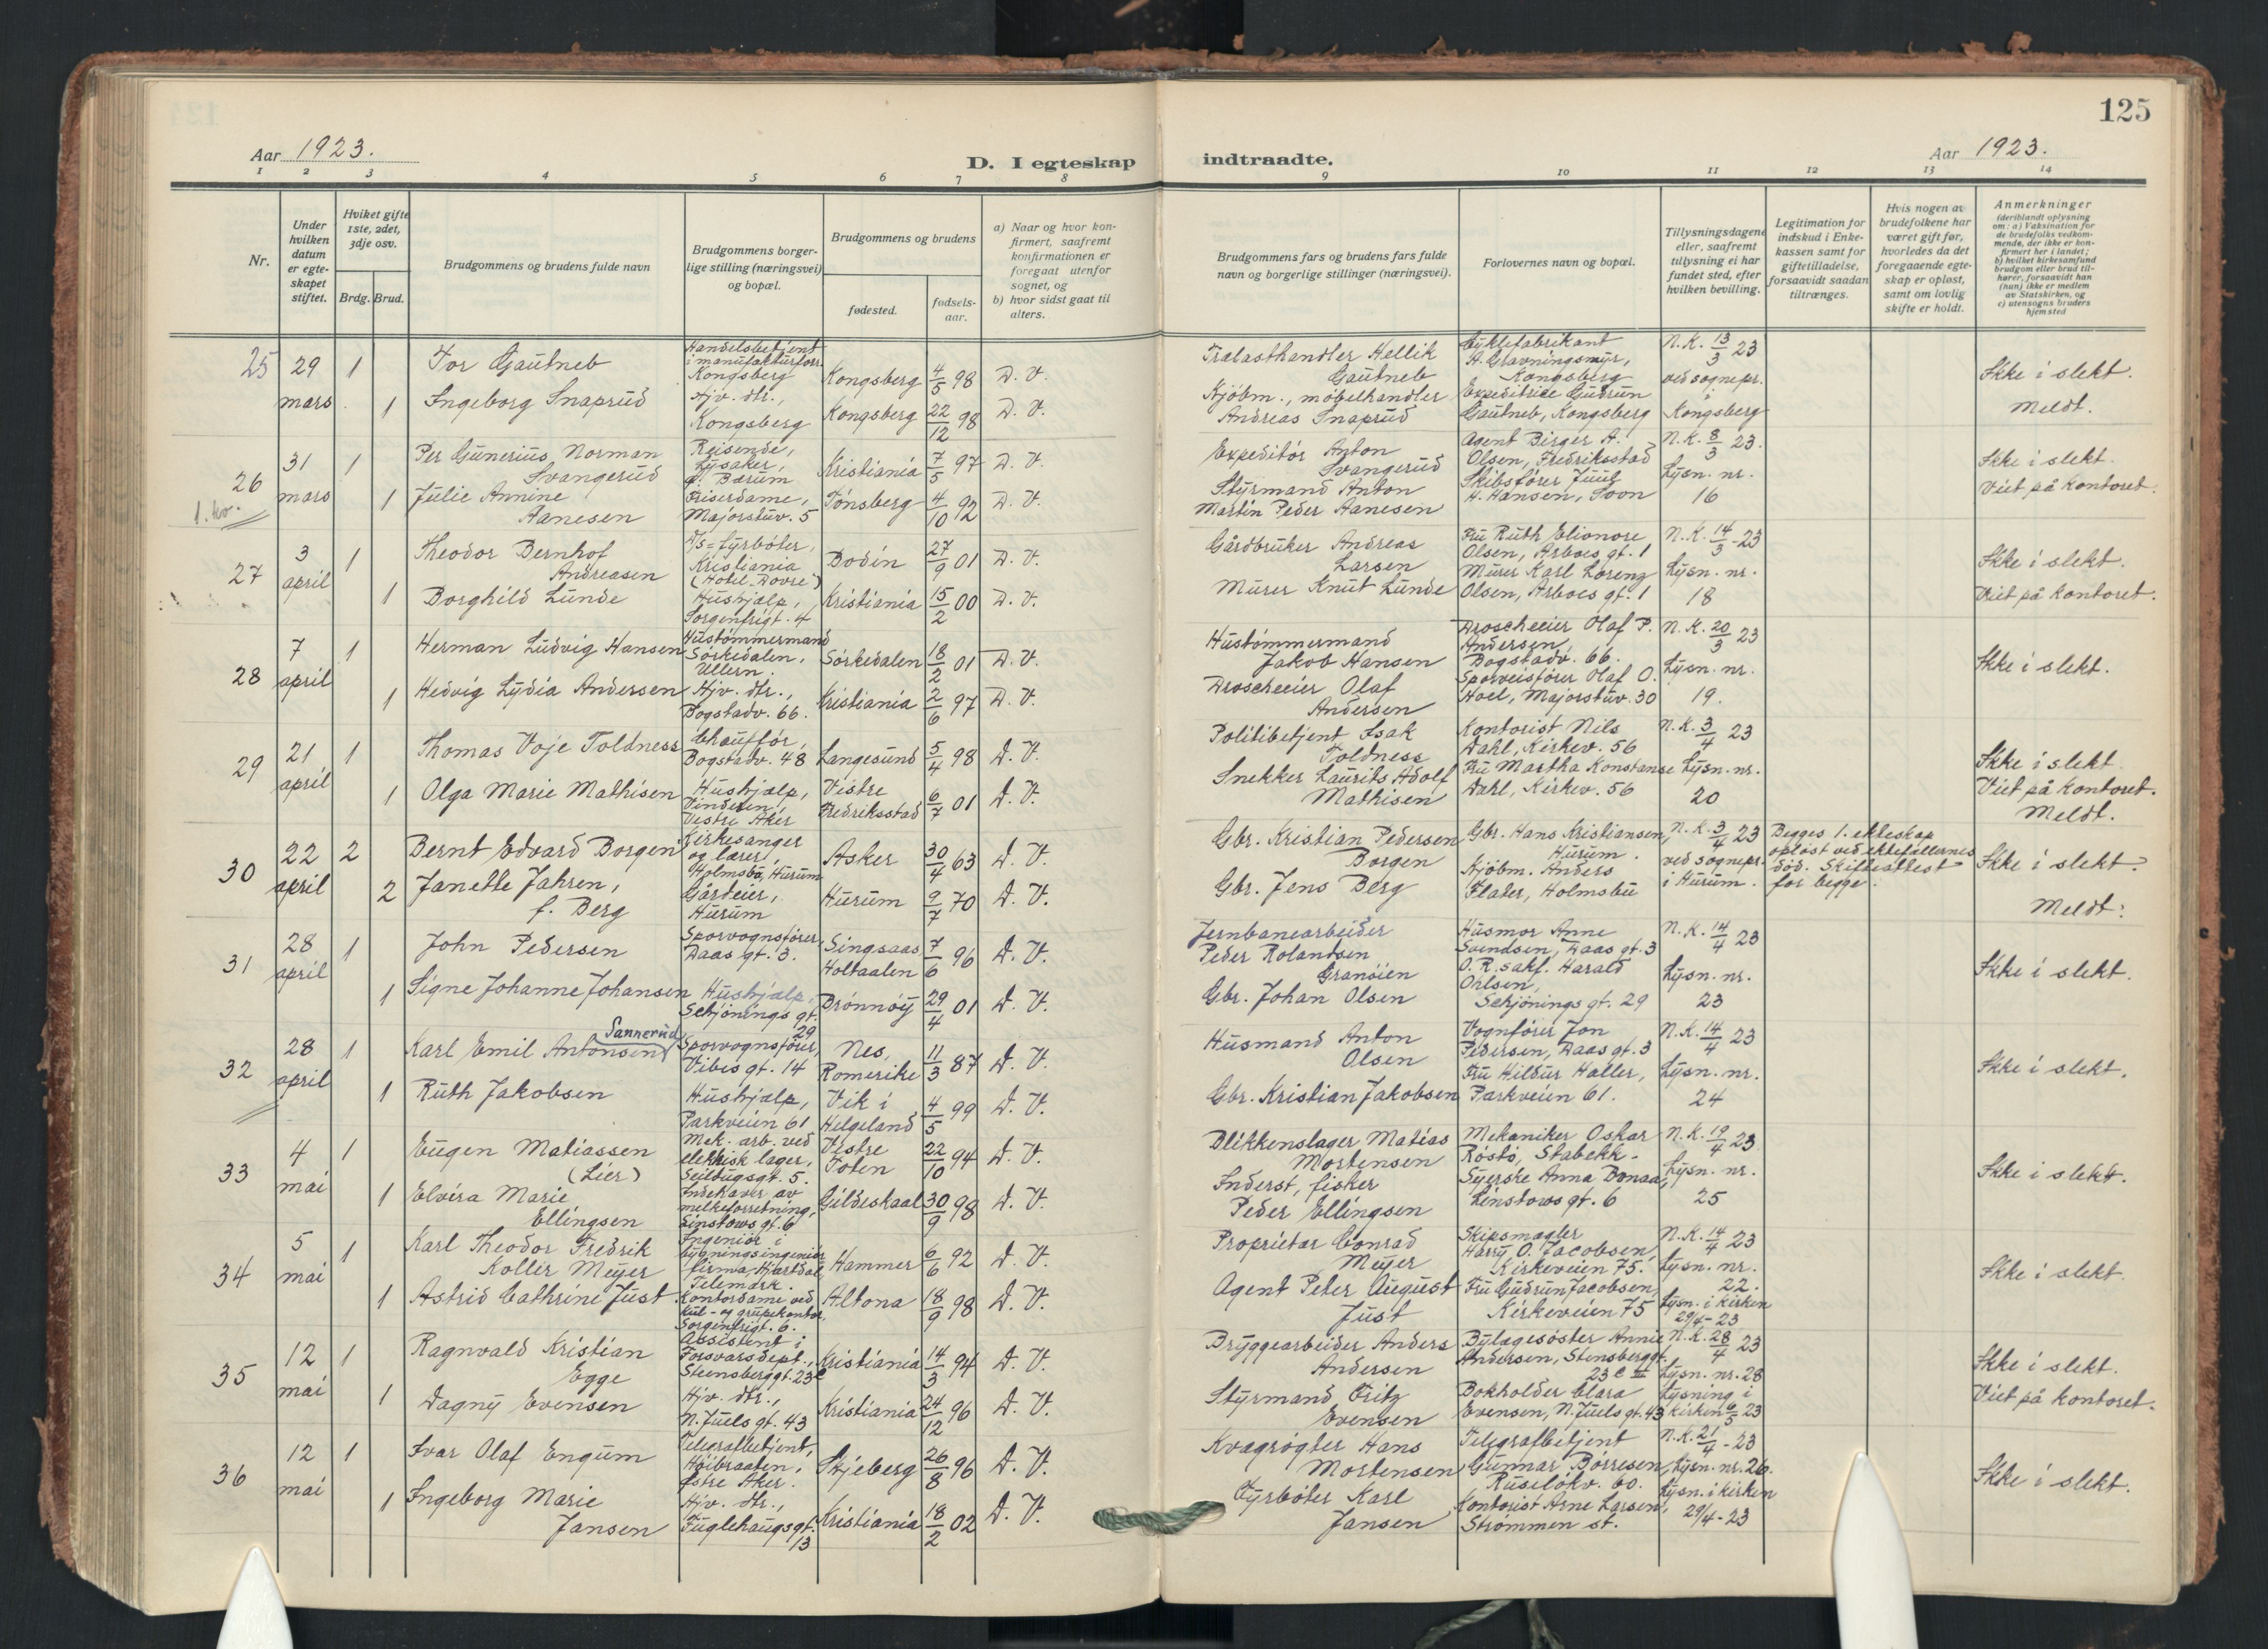 125
Aar 1923.
D. I egteskap indtraadte.
Aar 1923.
1 2 3 4 5 6 7 8 9 10 11 12 13 14
Nr.
Under hvilken datum er egteskapet stiftet.
Hviket gifte 1ste, 2det, 3dje osv.
Brdg. Brud.
Brudgommens og brudens fulde navn
Brudgommens borgerlige stilling (næringsvei) og bopæl.
Brudgommens og brudens
fødested.
fødselsaar.
a) Naar og hvor konfirmert, saafremt konfirmationen er foregaat utenfor sognet, og
b) hvor sidst gaat til alters.
Brudgommens fars og brudens fars fulde navn og borgerlige stillinger (næringsvei).
Forlovernes navn og bopæl.
Tillysningsdagene eller, saafremt tillysning ei har fundet sted, efter hvilken bevilling.
Legitimation for indskud i Enkekassen samt for giftetilladelse, forsaavidt saadan tiltrænges.
Hvis nogen av brudefolkene har været gift før, hvorledes da det foregaaende egteskap er opløst, samt om lovlig skifte er holdt.
Anmerkninger
(deriblandt oplysning om: a) Vaksination for de brudefolks vedkommende, der ikke er konfirmert her i landet; b) hvilket kirkesamfund brudgom eller brud tilhører, forsaavidt han (hun) ikke er medlem av Statskirken, og c) utensogns bruders hjemsted
25 29 mars 1 Tor Gautneb Handelsbetjent i manufakturforr. Kongsberg Kongsberg 4/5 98 D. V. Trælasthandler Hellik Gautneb Cyklefabrikant A. Gravningsmyr, Kongsberg N.K. 13/3 23 Ikke i slekt.
1 Ingeborg Snaprud Hjv. dtr., Kongsberg Kongsberg 22/12 98 D. V. Kjøbm., møbelhandler Andreas Snaprud Expeditrice Gudrun Gautneb, Kongsberg ved sognepr. i Kongsberg Meldt.
26 31 mars 1 Per Gunerius Norman Svangerud Reisende, Lysaker, Ø. Bærum Kristiania 7/5 97 D. V. Expeditør Anton Svangerud Agent Birger A. Olsen, Fredriksstad N.K. 8/3 23. Ikke i slekt.
1. kv.
1 Julie Annine Aanesen Friserdame, Majorstuv. 5 Tønsberg 4/10 92 D. V. Styrmand Anton Martin Peder Aanesen Skibsfører Juul H. Hansen, Soon Lysn. nr. 16 Viet på kontoret.
27 3 april 1 Theodor Bernhof Andreasen D/s=fyrbøter, Kristiania (Hotel Dovre) Bodin 27/9 01 D. V. Gårdbruker Andreas Larsen Fru Ruth Elionore Olsen, Arboes gt. 1 N.K. 14/3 -23 Ikke i slekt.
1 Borghild Lunde Hushjælp, Sorgenfrigt. 4 Kristiania 15/2 00 D. V. Murer Knut Lunde Murer Karl Lorenz Olsen, Arboes gt. 1 Lysn. nr. 18 Viet på kontoret.
28 7 april 1 Herman Ludvig Hansen Hustømmermand Sørkedalen, Ullern. Sørkedalen 18/2 01 D. V. Hustømmermand Jakob Hansen Droscheeier Olaf P. Andersen, Bogstadv. 66. N.K. 20/3 23 Ikke i slekt.
1 Hedvig Lydia Andersen Hjv. dtr., Bogstadv. 66. Kristiania 2/6 97 D. V. Droscheeier Olaf Andersen Sporveisfører Olaf O. Hoel, Majorstuv. 30 Lysn. nr. 19.
29 21 april 1 Thomas Voje Toldness Chauffør, Bogstadv. 48 Langesund 5/4 98 D. V. Politibetjent Isak Toldness Kontorist Nils Dahl, Kirkev. 56 N.K. 3/4 23 Ikke i slekt.
1 Olga Marie Mathisen Hushjælp, Vinderen, Vestre Aker Vestre Fredriksstad 6/7 01 D. V. Snekker Laurits Adolf Mathisen Fru Martha Konstanse Dahl, Kirkev. 56 Lysn. nr. 20 Viet på kontoret. Meldt.
30 22 april 2 Bernt Edvard Borgen Kirkesanger og lærer, Holmsbo, Hurum Asker 30/4 63 D. V. Gbr. Kristian Pedersen Borgen Gbr. Hans Kristiansen, Hurum. N.K. 3/4 23 Begges 1. ekteskap opløst ved ektefællernes død. Skifteattest for begge. Ikke i slekt.
2 Janette Jahren, f. Berg Gårdeier, Hurum Hurum 9/7 70 D. V. Gbr. Jens Berg Kjøbm. Anders Flater, Holmsbu ved sognepr. i Hurum. Meldt.
31 28 april 1 John Pedersen Sporvognsfører, Daas gt. 3. Singsaas Holtaalen 7/6 96 D. V. Jernbanearbeider Peder Rolandsen Granøien Husmor Anne Svendsen, Daas gt. 3 N.K. 14/4 23 Ikke i slekt.
1 Signe Johanne Johansen Hushjælp, Schjønings gt. 29 Brønnøy 29/4 01 D. V. Gbr. Johan Olsen O.R.sakf. Harald Ohlsen, Schjønings gt. 29 Lysn. nr. 23
32 28 april 1 Karl Emil Antonsen Sannerud Sporvognsfører, Vibes gt. 14 Nes, Romerike 11/3 87 D. V. Husmand Anton Olsen Vognfører Jon Pedersen, Daas gt. 3 N.K. 14/4 23 Ikke i slekt.
1 Ruth Jakobsen Hushjælp, Parkveien 61 Vik i Helgeland 4/5 99 D. V. Gbr. Kristian Jakobsen Fru Hildur Haller, Parkveien 61. Lysn. nr. 24
33 4 mai 1 Eugen Matiassen (Lier) Mek. arb. ved elektrisk lager, Seildugsgt. 5. Vestre Toten 22/10 94 D. V. Blikkenslager Matias Mortensen Mekaniker Oskar Røstø, Stabekk. N.K. 19/4 23 Ikke i slekt.
1 Elvira Marie Ellingsen Indehaver av melkeforretning, Linstows gt. 6 Gildeskaal 30/9 98 D. V. Inderst, fisker Peder Ellingsen Syerske Anna Bonaa, Linstows gt. 6 Lysn. nr. 25
34 5 mai 1 Karl Theodor Fredrik Koller Meyer Ingeniør i bygningsingeniør firma, Hjartdal, Telemark. Hammer 6/6 92 D. V. Proprietær Conrad Meyer Skipsmægler Harry O. Jacobsen, Kirkeveien 75. N.K. 14/4 23 Ikke i slekt.
1 Astrid Cathrine Just. Kontordame ved kul- og grubekontor, Sorgenfrigt. 6. Altona 18/9 98 D. V. Agent Peter August Just Fru Gudrun Jacobsen, Kirkeveien 75 Lysn. nr. 22. Lysn. i kirken 29/4-23
35 12 mai 1 Ragnvald Kristian Egge Assistent i Forsvarsdept., Steensberggt. 23c Kristiania 14/3 94 D. V. Bryggearbeider Anders Andersen Bylægesøster Annie Andersen, Stensberggt. 23 c III N.K. 28/4 23 Lysn. nr. 28 Ikke i slekt.
1 Dagny Evensen Hjv. dtr., N. Juels gt. 43 Kristiania 24/12 96 D. V. Styrmand Fritz Evensen Bokholder Clara Evensen, N. Juels gt. 43 Lysning i kirken 6/5 23 Viet på kontoret.
36 12 mai 1 Ivar Olaf Engum Telegrafbetjent, Høibraaten, Østre Aker. Skjeberg 26/8 96 D. V. Kvægrøgter Hans Mortensen Telegrafbetjent Gunnar Børresen, Ruseløkv. 60. N.K. 21/4 -23 Lysn. nr. 26. Ikke i slekt.
1 Ingeborg Marie Jansen Hjv. dtr., Fuglehaugsgt. 13 Kristiania 18/2 02 D. V. Fyrbøter Karl Jansen Kontorist Arne Larsen, Strømmen st. Lysn. i kirken 29/4-23